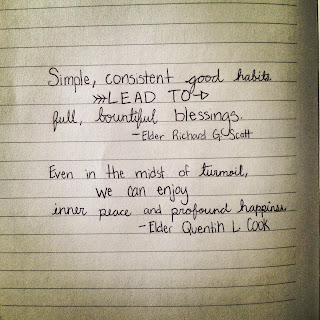 Simple, consistent good habits
LEAD TO
full, bountiful blessings.
-Elder Richard G. Scott
Even in the midst of turmoil,
we can enjoy
inner peace and profound happiness.
-Elder Quentin L Cook